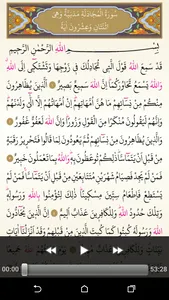 سُورَةُ الْمُجَادَلَةِ مَدَنِيَّةٌ وَهِيَ
اثْنَتَانِ وَعِشْرُونَ آيَةً
بِسْمِ اللَّهِ الرَّحْمَٰنِ الرَّحِيمِ
قَدْ سَمِعَ اللَّهُ قَوْلَ الَّتِي تُجَادِلُكَ فِي زَوْجِهَا وَتَشْتَكِي إِلَى اللَّهِ
وَاللَّهُ يَسْمَعُ تَحَاوُرَكُمَا إِنَّ اللَّهَ سَمِيعٌ بَصِيرٌ الَّذِينَ يُظَاهِرُونَ
مِنكُم مِّن نِّسَائِهِم مَّا هُنَّ أُمَّهَاتِهِمْ إِنْ أُمَّهَاتُهُمْ إِلَّا اللَّائِي وَلَدْنَهُمْ
وَإِنَّهُمْ لَيَقُولُونَ مُنكَرًا مِّنَ الْقَوْلِ وَزُورًا وَإِنَّ اللَّهَ لَعَفُوٌّ غَفُورٌ
وَالَّذِينَ يُظَاهِرُونَ مِن نِّسَائِهِمْ ثُمَّ يَعُودُونَ لِمَا قَالُوا فَتَحْرِيرُ رَقَبَةٍ
مِّن قَبْلِ أَن يَتَمَاسَّا ذَٰلِكُمْ تُوعَظُونَ بِهِ وَاللَّهُ بِمَا تَعْمَلُونَ خَبِيرٌ
فَمَن لَّمْ يَجِدْ فَصِيَامُ شَهْرَيْنِ مُتَتَابِعَيْنِ مِن قَبْلِ أَن يَتَمَاسَّا فَمَن لَّمْ
يَسْتَطِعْ فَإِطْعَامُ سِتِّينَ مِسْكِينًا ذَٰلِكَ لِتُؤْمِنُوا بِاللَّهِ وَرَسُولِهِ
وَتِلْكَ حُدُودُ اللَّهِ وَلِلْكَافِرِينَ عَذَابٌ أَلِيمٌ إِنَّ الَّذِينَ يُحَادُّونَ
00:00 53:28